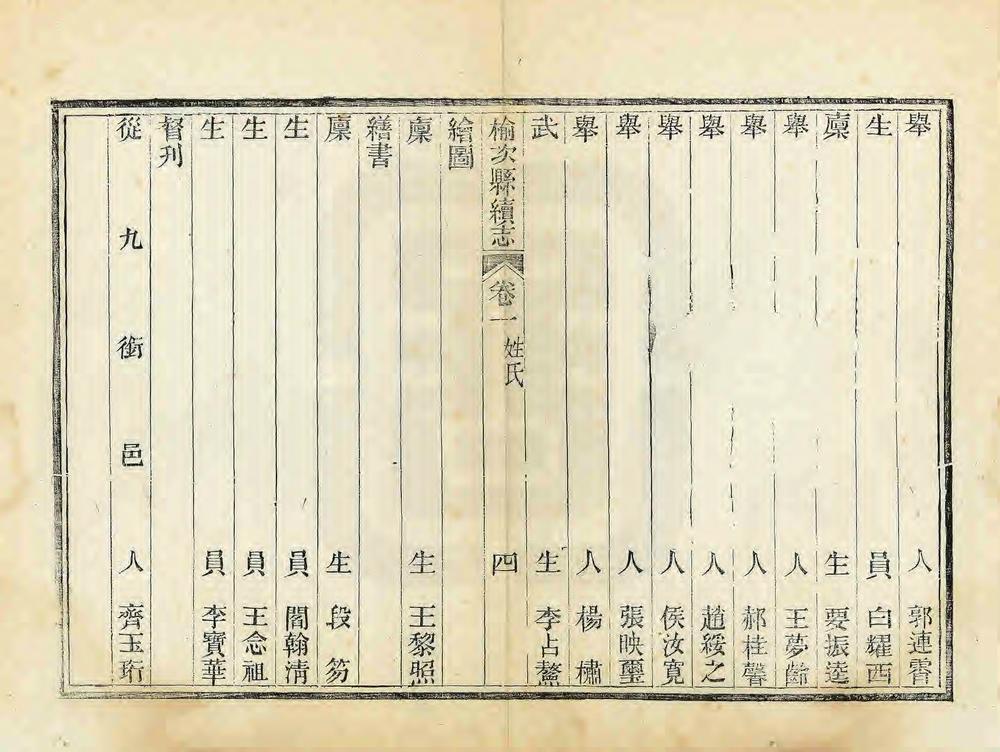 舉人郭連霄
生員白耀西
廩生要振逵
舉人王夢齡
舉人郝桂馨
舉人趙綏之
舉人侯汝寬
舉人張映璽
舉人楊橚
武生李占鰲
榆次縣續志 卷一 姓氏 四
繪圖
廩生王黎照
繕書
廩生段笏
生員閻翰清
生員王念祖
生員李寶華
督刊
從九銜邑人齊玉珩